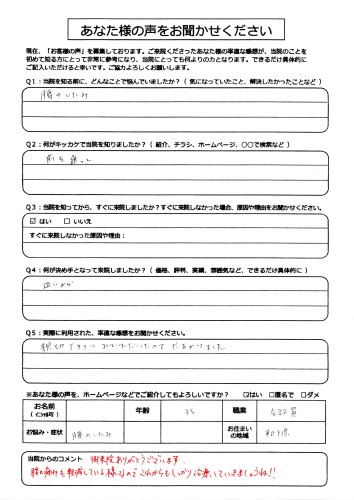 あなた様の声をお聞かせください
現在、「お客様の声」を募集しております。ご来院くださったあなた様の率直な感想が、当院のことを
初めて知る方にとって非常に参考になり、当院にとっても何よりの力となります。できるだけ具体的に
ご記入いただけると幸いです。ご協力よろしくお願いします。
Q1：当院を知る前に、どんなことで悩んでいましたか？（ 気になっていたこと、解決したかったことなど ）
腰のいたみ
Q2：何がキッカケで当院を知りましたか？（ 紹介、チラシ、ホームページ、〇〇で検索など ）
前を通って
Q3：当院を知ってから、すぐに来院しましたか？すぐに来院しなかった場合、原因や理由をお聞かせください。
☑ はい ☐ いいえ
すぐに来院しなかった原因や理由：
Q4：何が決め手となって来院しましたか？（ 価格、評判、実績、雰囲気など、できるだけ具体的に ）
近いから
Q5：実際に利用された、率直な感想をお聞かせください。
※あなた様の声を、ホームページなどでご紹介してもよろしいですか？ ☑はい ☐匿名で ☐ダメ
お名前 年齢 35 職業 会社員
（ｲﾆｼｬﾙ可）
お悩み・症状 腰のいたみ お住まいの地域
当院からのコメント 御来院ありがとうございます。
腰の痛みも軽減している様なのでこれからもしっかり治療していきましょうね!!